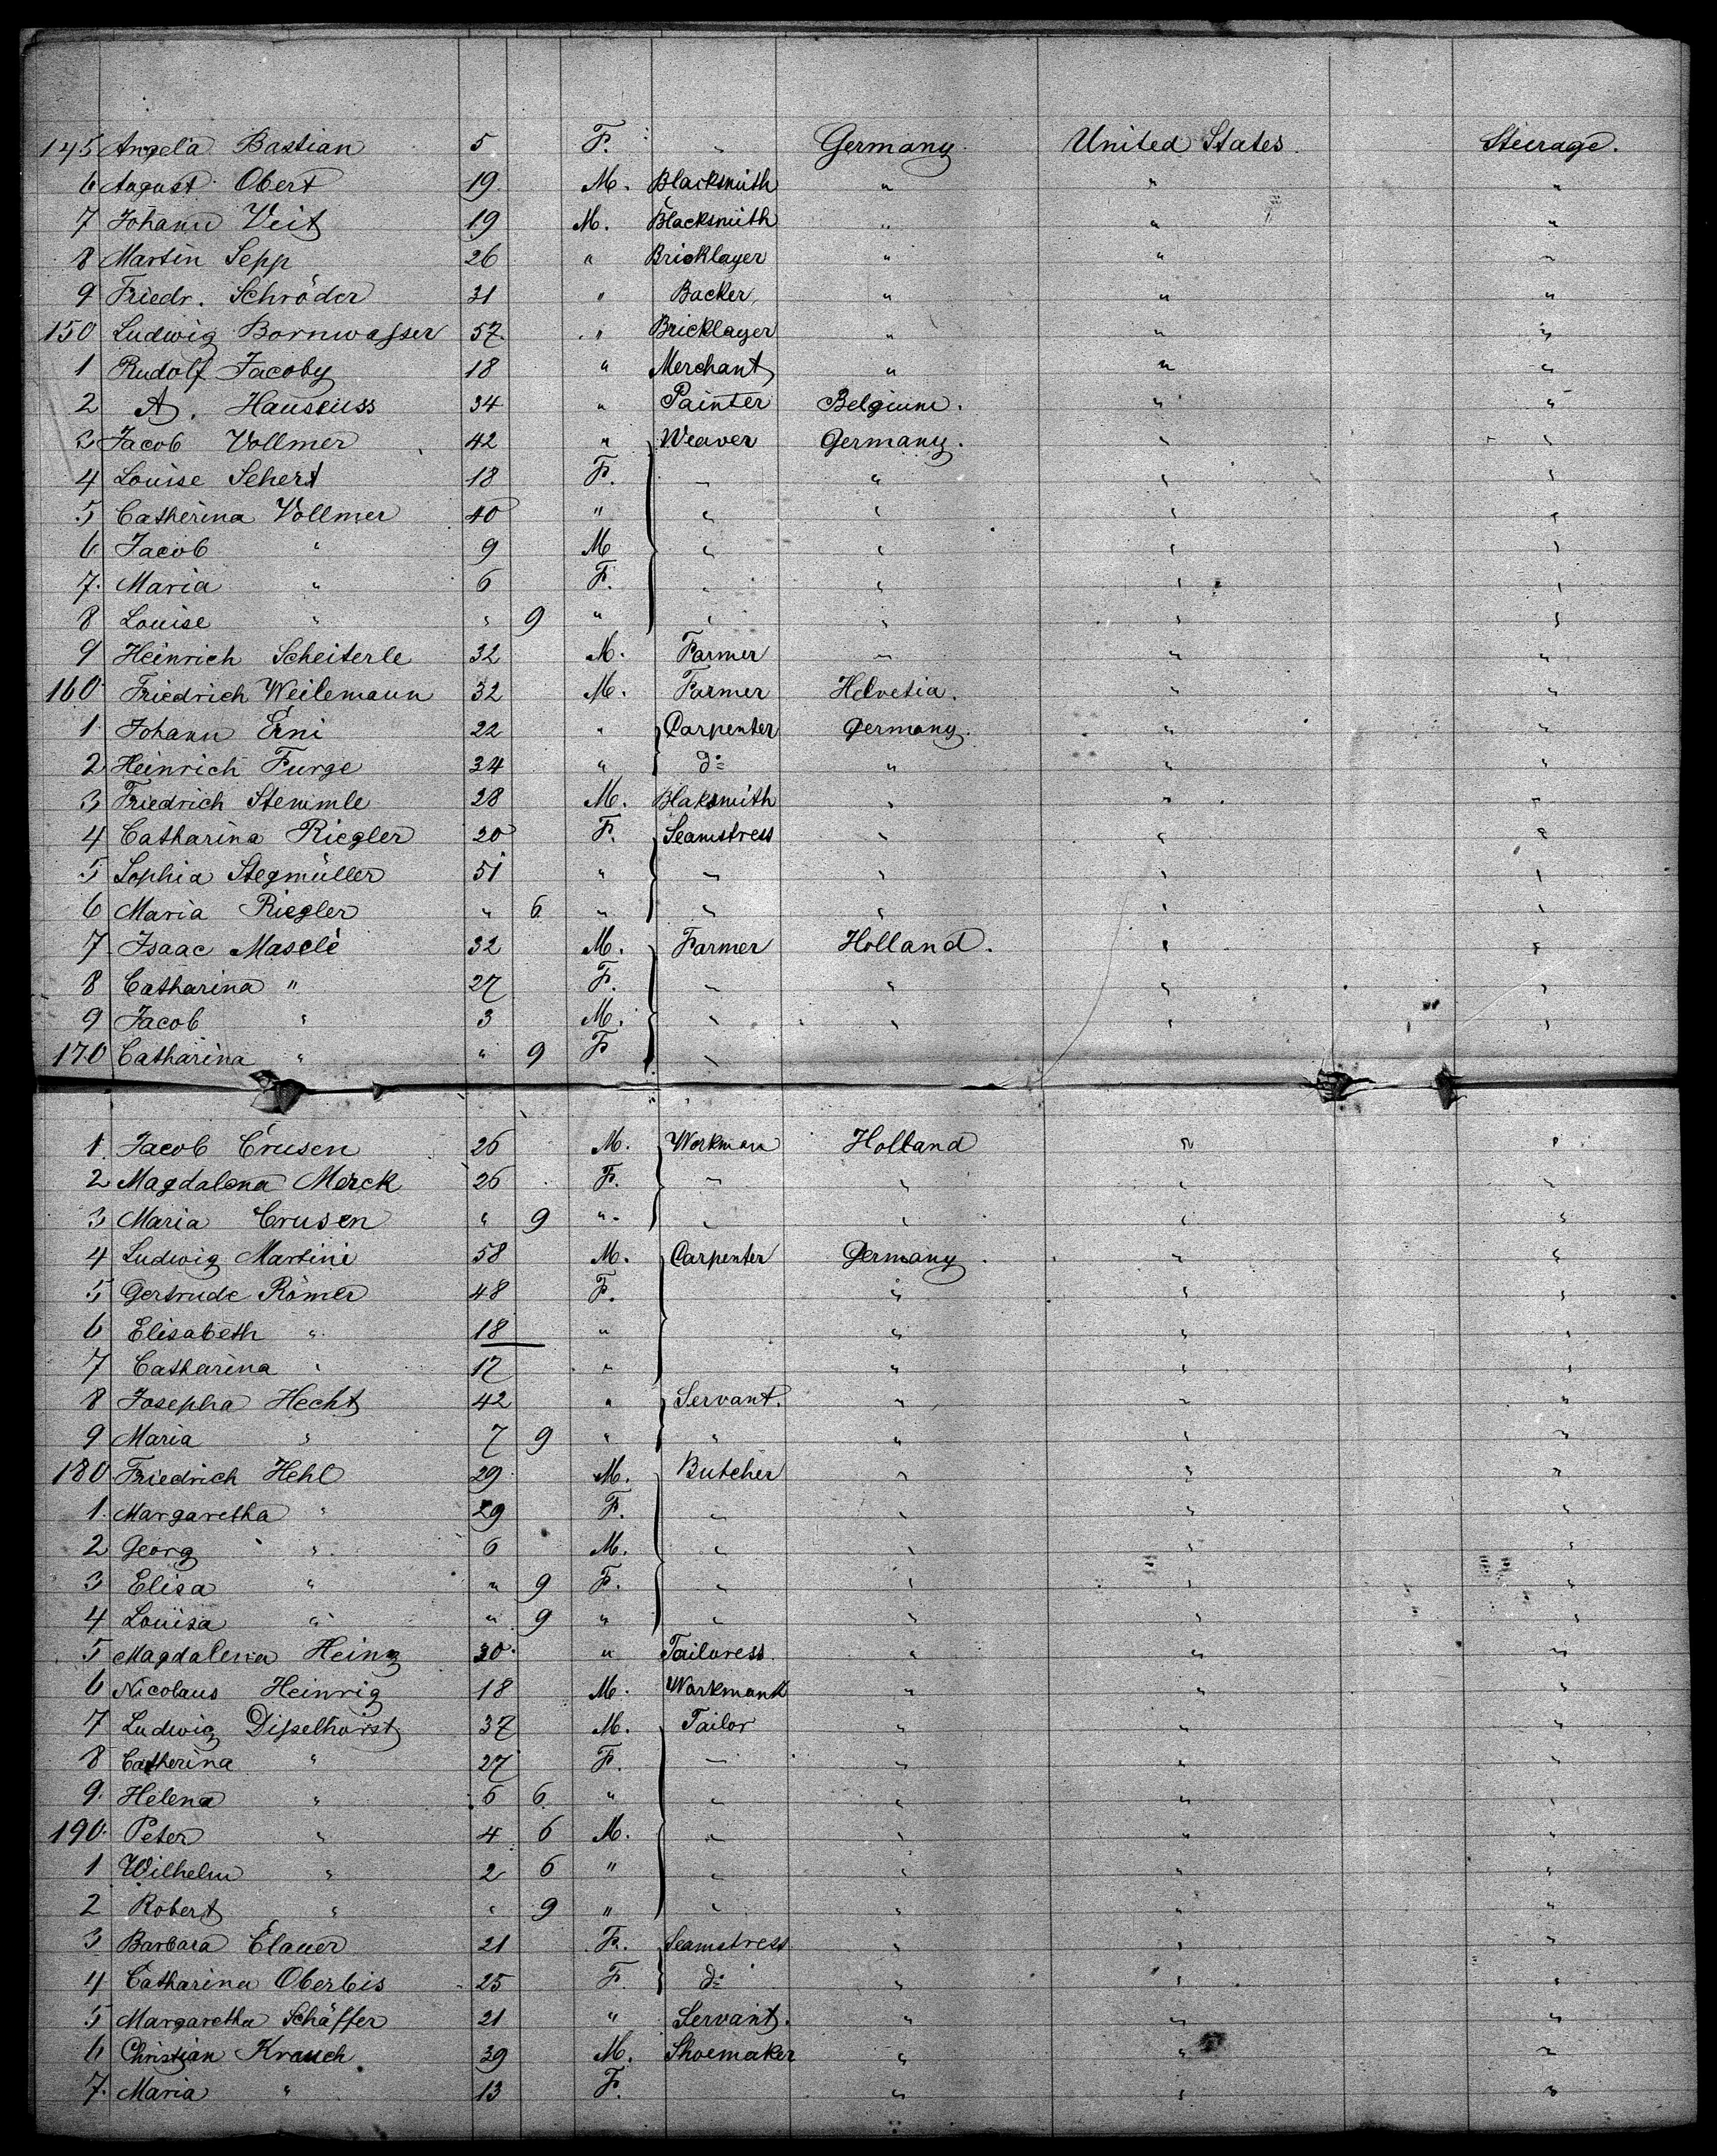 145 Angela Bastian 5 F. " Germany. United States. Steerage.
6 August Obert 19. M. Blacksmith " " "
7 Johann Veit 19 M. Blacksmith " " "
8 Martin Sepp 26 " Bricklayer " " "
9 Friedr. Schröder 31 " Backer " " "
150 Ludwig Bornwasser 57. " Bricklayer " " "
1 Rudolf Jacoby 18 " Merchant " " "
2 A. Hauseuss 34 " Painter Belgium. " "
3 Jacob Vollmer 42 " Weaver Germany. " "
4 Louise Schert 18 F. " " " "
5 Catherina Vollmer 40 " " " " "
6 Jacob " 9 M " " " "
7. Maria " 6 F. " " " "
8 Louise " " 9 " " " " "
9 Heinrich Scheiterle 32 M. Farmer " " "
160 Friedrich Weilemann 32 M. Farmer Helvetia. " "
1. Johann Erni 22 " Carpenter Germany. " "
2 Heinrich Furge 34 " do " " "
3 Friedrich Stemmle 28 M. Blaksmith " " "
4 Catharina Riegler 20 F. Seamstress " " "
5 Sophia Stegmüller 51 " " " " "
6 Maria Riegler " 6 " " " " "
7 Isaac Masclè 32 M. Farmer Holland. " "
8 Catharina " 27 F. " " " "
9 Jacob " 3 M. " " " "
170 Catharina " " 9 F "
1. Jacob Crusen 26 M. Workman Holland " "
2 Magdalena Merck 26 F. " " " "
3 Maria Crusen " 9 " " " " "
4 Ludwig Martini 58 M. Carpenter Germany. " "
5 Gertrude Römer 48 F. " " "
6 Elisabeth " 18 " " " "
7 Catharina " 17 " " " "
8 Josepha Hecht 42 " Servant. " " "
9 Maria " 7 9 " " " " "
180 Friedrich Hehl 29 M. Butcher " " "
1. Margaretha " 29 F. " " " "
2 Georg " 6 M. " " " "
3 Elisa " " 9 F. " " " "
4 Louisa " " 9 " " " " "
5 Magdalena Heinz 30 " Tailoress. " " "
6 Nicolaus Heinrig 18 M. Workmank " " "
7 Ludwig Disselhorst 37 M. Tailor " " "
8 Catherina " 27 F. " " " "
9. Helena " 6 6 " " " " "
190. Peter " 4 6 M. " " " "
1 Wilhelm " 2 6 " " " " "
2 Robert " " 9 " " " " "
3 Barbara Elauer 21 F. Seamstress " " "
4 Catharina Oberbis 25 F. do " " "
5 Margaretha Schäffer 21 " Servant. " " "
6 Christian Krauch. 39 M. Shoemaker " " "
7. Maria " 13 F. " " "